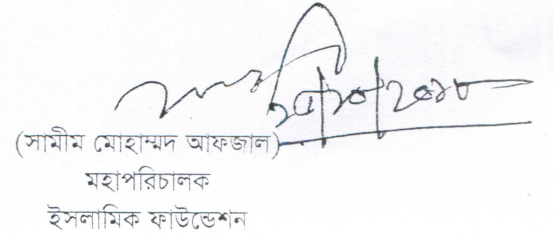 (সামীম মোহাম্মদ আফজাল)
মহাপরিচালক
ইসলামিক ফাউন্ডেশন